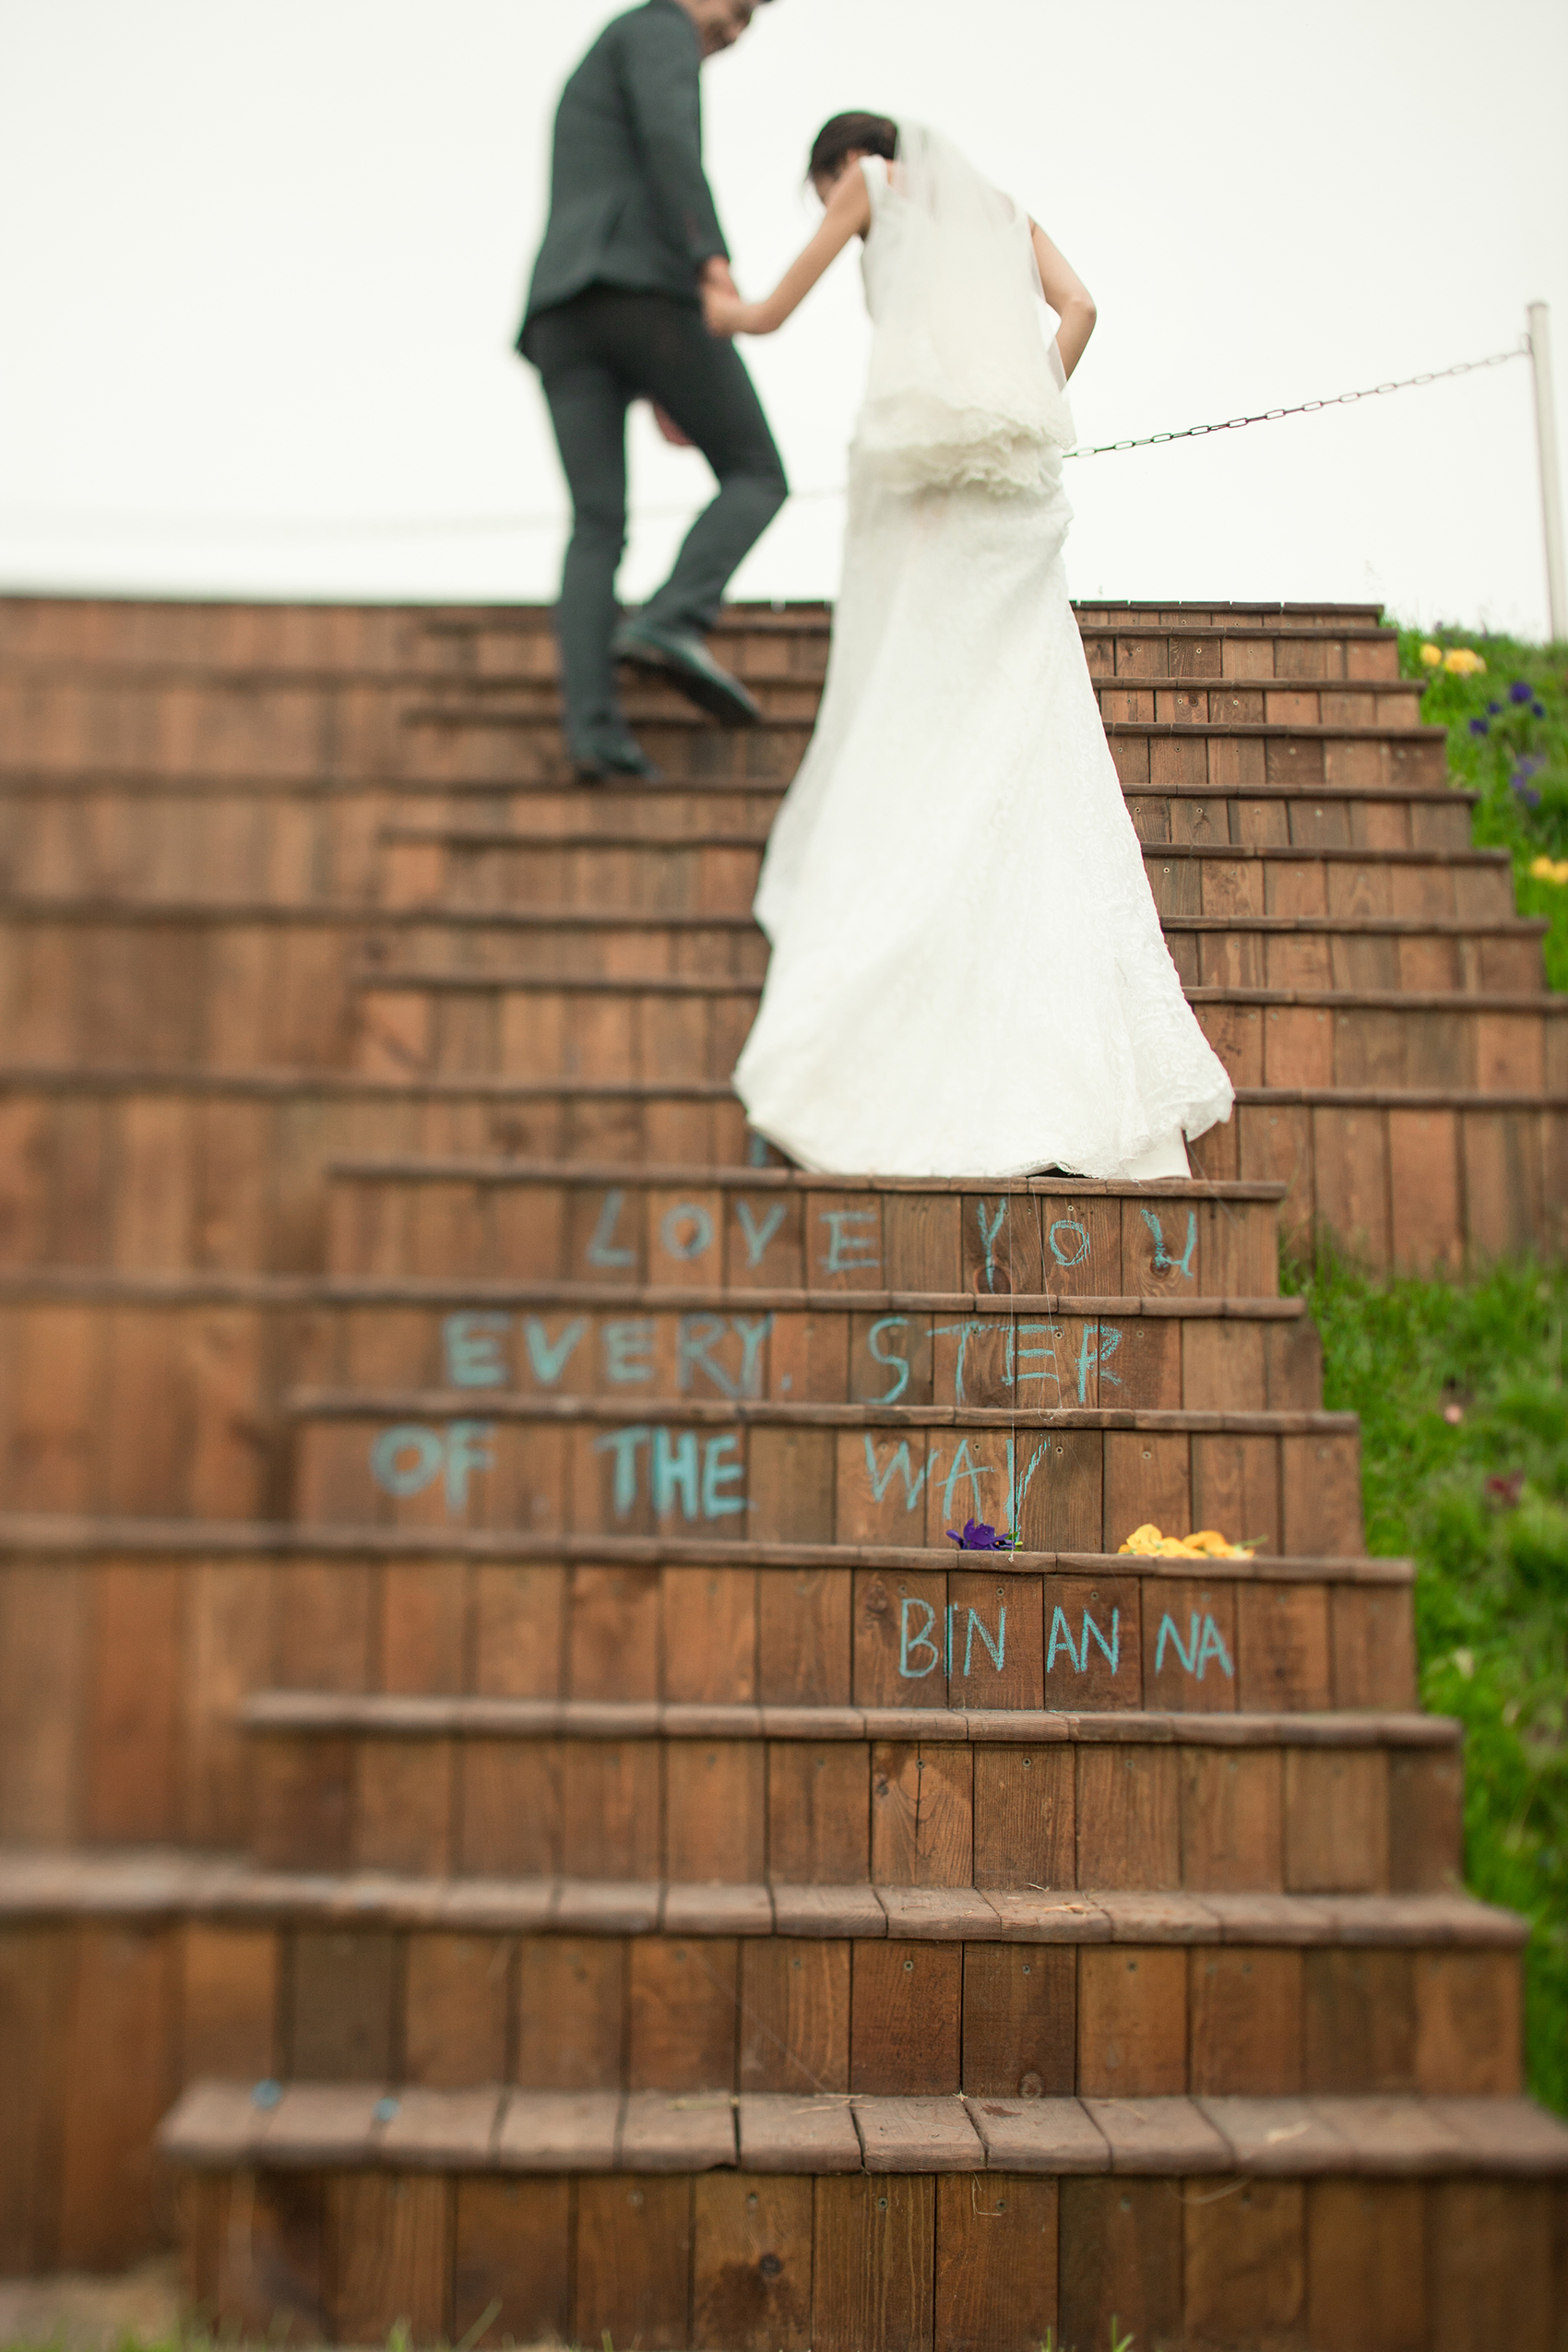 I
LOVE YOU
EVERY. STEP
OF THE WAY
BIN AN NA